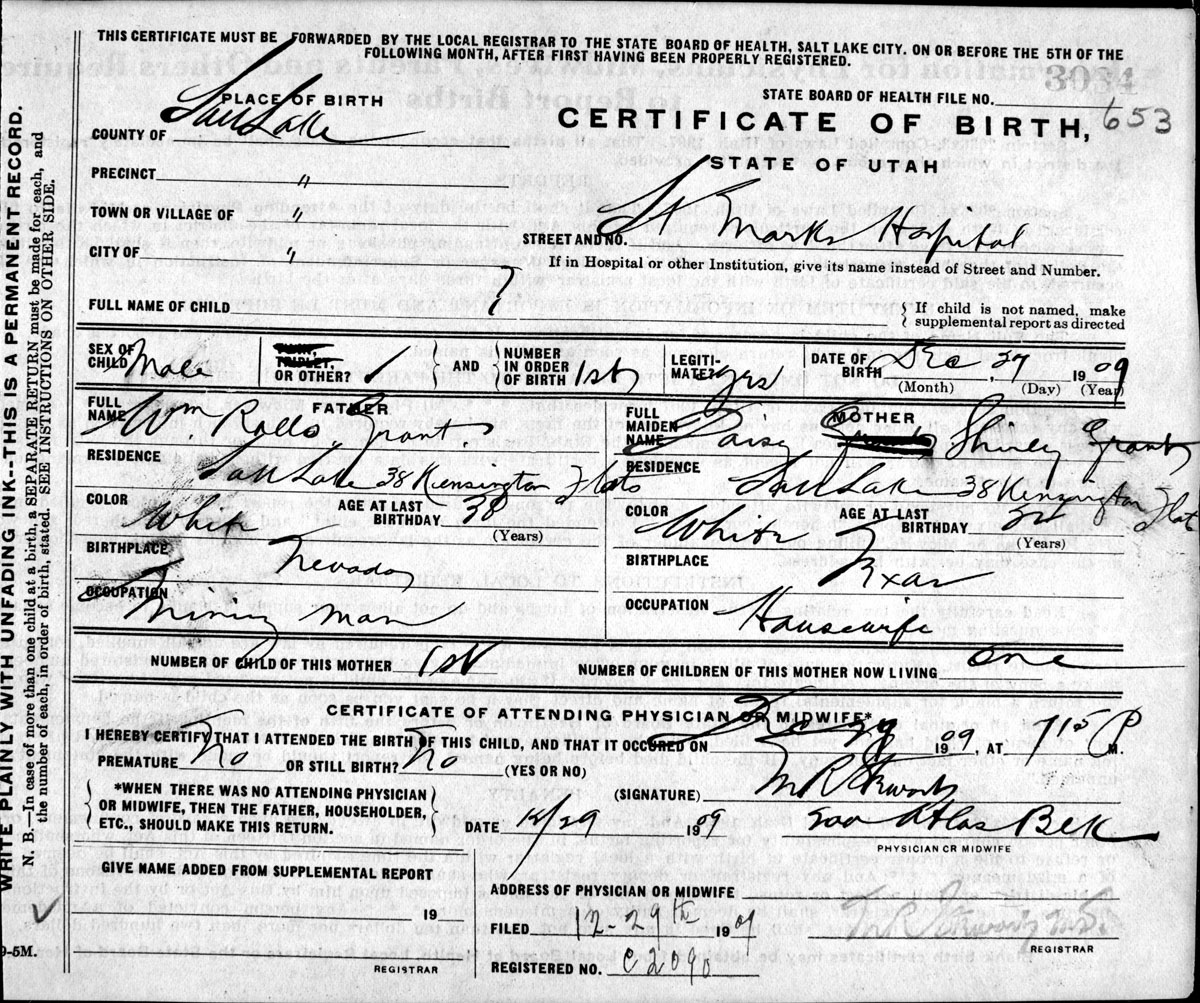 THIS CERTIFICATE MUST BE FORWARDED BY THE LOCAL REGISTRAR TO THE STATE BOARD OF HEALTH, SALT LAKE CITY. ON OR BEFORE THE 5TH OF THE
FOLLOWING MONTH, AFTER FIRST HAVING BEEN PROPERLY REGISTERED.
3084
PLACE OF BIRTH
STATE BOARD OF HEALTH FILE NO.
653
CERTIFICATE OF BIRTH,
STATE OF UTAH
COUNTY OF Salt Lake
PRECINCT "
TOWN OR VILLAGE OF "
CITY OF "
STREET AND NO. St Marks Hospital
If in Hospital or other Institution, give its name instead of Street and Number.
FULL NAME OF CHILD ?
If child is not named, make
supplemental report as directed
SEX OF CHILD Male
TWIN, TRIPLET, OR OTHER? 1 AND NUMBER IN ORDER OF BIRTH 1st
LEGITIMATE? yes
DATE OF BIRTH Dec. 27 1909
(Month) (Day) (Year)
FATHER
FULL NAME Wm Rollo Grant
RESIDENCE Salt Lake 38 Kensington Flats
COLOR White AGE AT LAST BIRTHDAY 38
(Years)
BIRTHPLACE Nevada
OCCUPATION Mining man
MOTHER
FULL MAIDEN NAME Shirley Grant
RESIDENCE Salt Lake 38 Kensington Flat
COLOR White AGE AT LAST BIRTHDAY
(Years)
BIRTHPLACE Texas
OCCUPATION Housewife
NUMBER OF CHILD OF THIS MOTHER 1st NUMBER OF CHILDREN OF THIS MOTHER NOW LIVING one
CERTIFICATE OF ATTENDING PHYSICIAN OR MIDWIFE*
I HEREBY CERTIFY THAT I ATTENDED THE BIRTH OF THIS CHILD, AND THAT IT OCCURED ON Dec 27 1909, AT 715 P M.
PREMATURE No OR STILL BIRTH? No (YES OR NO)
*WHEN THERE WAS NO ATTENDING PHYSICIAN
OR MIDWIFE, THEN THE FATHER, HOUSEHOLDER,
ETC., SHOULD MAKE THIS RETURN.
(SIGNATURE)
DATE 12/29 1909 Atlas Blk
PHYSICIAN OR MIDWIFE
GIVE NAME ADDED FROM SUPPLEMENTAL REPORT
19
REGISTRAR
ADDRESS OF PHYSICIAN OR MIDWIFE
FILED 12-29th 1909
REGISTRAR
REGISTERED NO. C2090
9-5M.
WRITE PLAINLY WITH UNFADING INK--THIS IS A PERMANENT RECORD.
N. B.—In case of more than one child at a birth, a SEPARATE RETURN must be made for each, and
the number of each, in order of birth, stated. SEE INSTRUCTIONS ON OTHER SIDE.